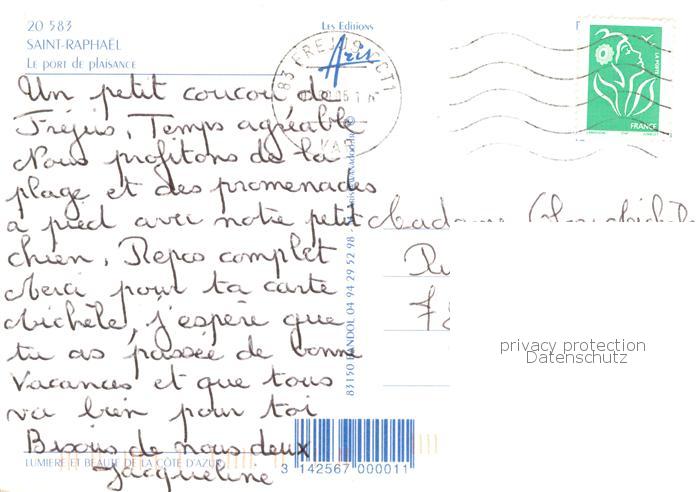 20 583
SAINT-RAPHAËL
Le port de plaisance
Les Editions
Aris
83 FREJUS CT1
VAR
LA POSTE
FRANCE
Un petit coucou de
Fréjus, Temps agréable
Nous profitons de la
plage et des promenades
a pied avec notre petit
chien, Repos complet
Merci pour ta carte
Michèle, j'espère que
tu as passée de bonne
Vacances et que tous
va bien pour toi
Bisous de nous deux
Jacqueline
LUMIERE ET BEAUTE DE LA CÔTE D'AZUR
83150 BANDOL 04 94 29 52 98
Madame
Ru
privacy protection
Datenschutz
3 142567 000011